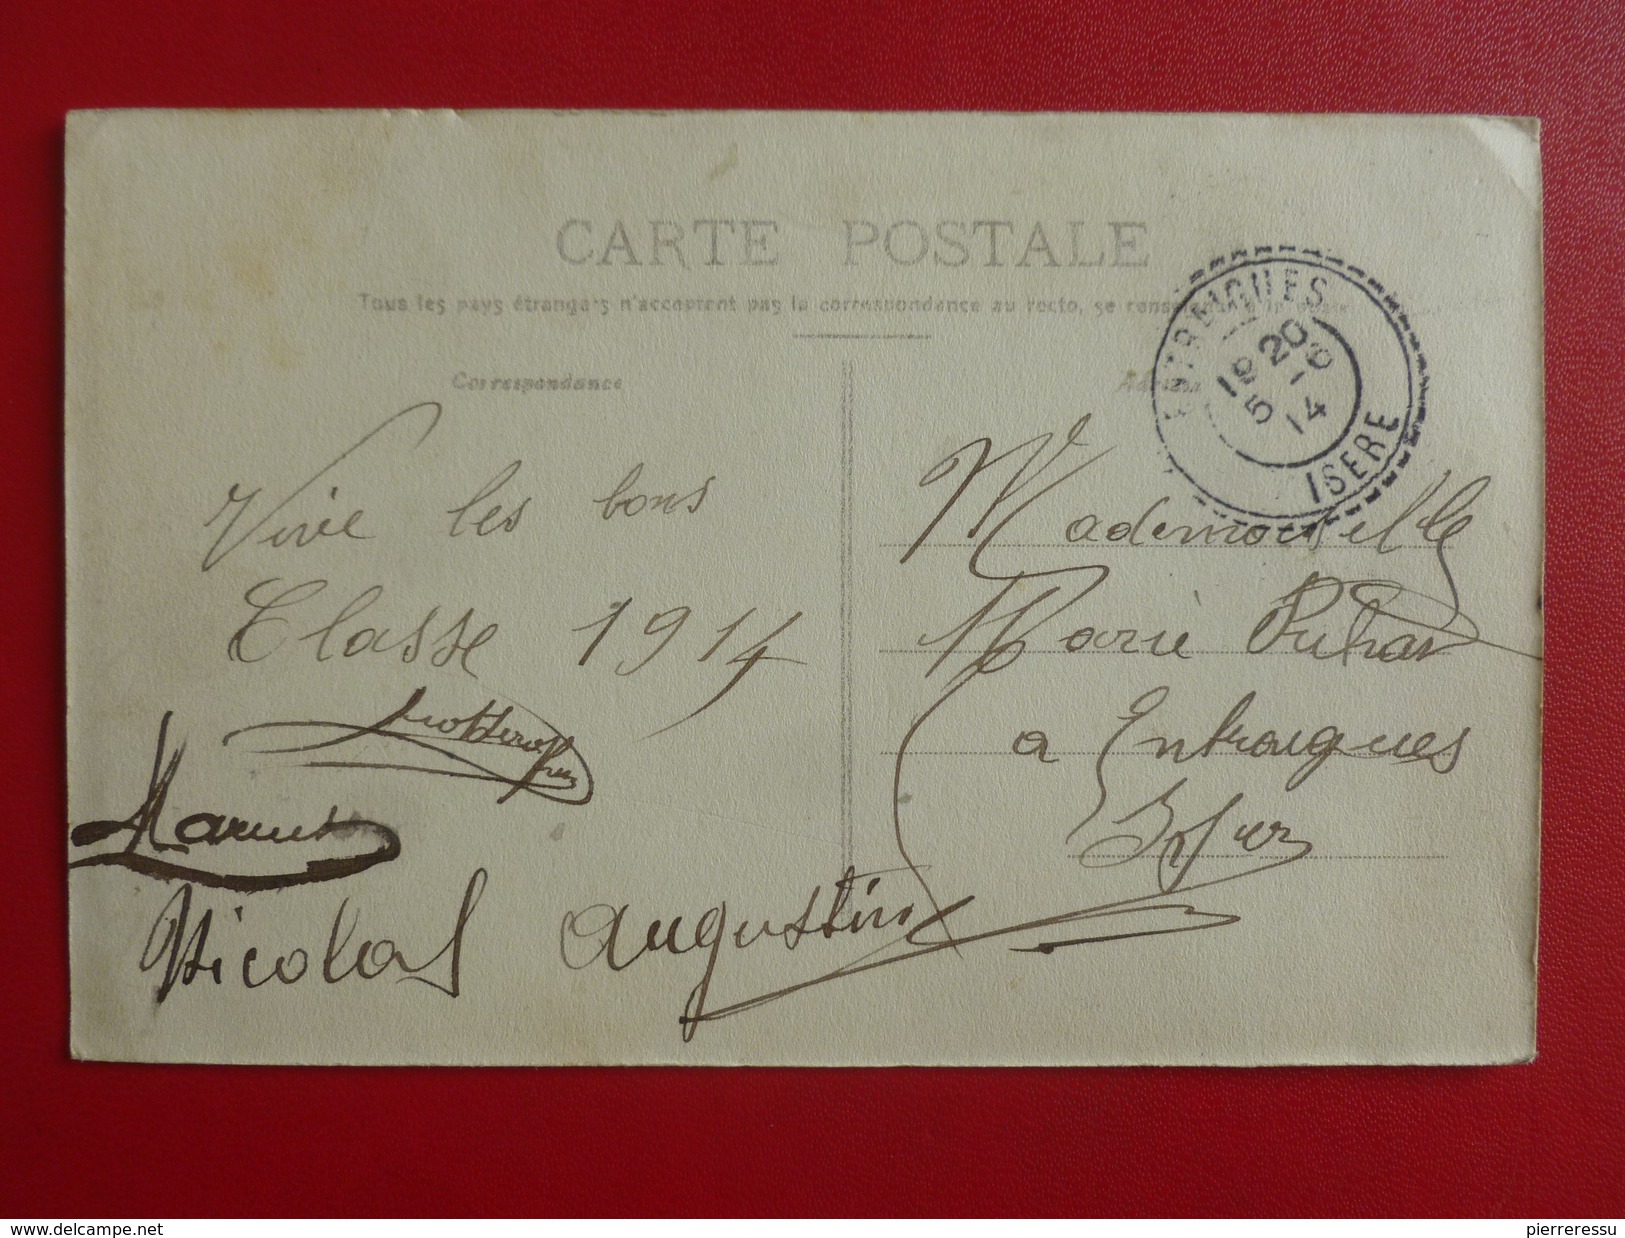 CARTE POSTALE
Tous les pays étrangers n'acceptent pas la correspondance au recto, se
Correspondance
Vive les bons
Classe 1914
Nicolas Augustin
ENTRAIGUES
18 20
5 - 6
14
ISERE
Mademoiselle
Marie
a Entraigues
Isère
www.delcampe.net
pierreressu